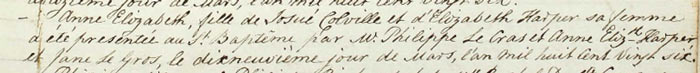 jour de Mars, l'an mil huit cent vingt six.
– Anne Elizabeth, fille de Josué Colville et d'Elizabeth Harper sa femme
a été presentée au St. Baptême par Mr. Philippe Le Gras et Anne Elizth. Harper
et Jane Le Gros, le dixneuvième jour de Mars, l'an mil huit cent vingt six